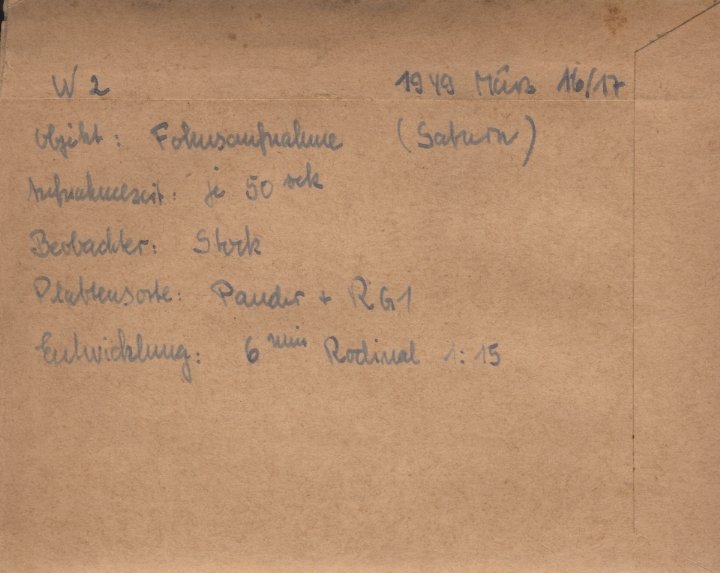 W 2 1949 März 16/17
Objekt: Fokusaufnahme (Saturn)
Aufnahmezeit: je 50 sek
Beobachter: Stock
Plattensorte: Pander + RG1
Entwicklung: 6 min Rodinal 1:15